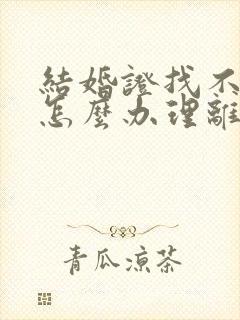 結婚證找不
怎麼办理離
青瓜凉茶